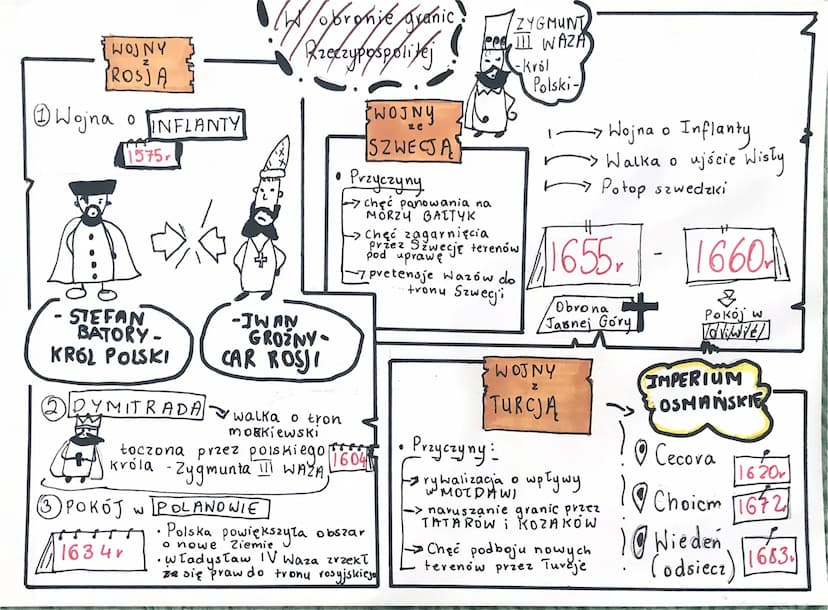 W obronie granic
Rzeczypospolitej
ZYGMUNT
III WAZA
-król
Polski-
WOJNY
z
ROSJĄ
1 Wojna o INFLANTY
1575r
-STEFAN
BATORY-
KRÓL POLSKI
-IWAN
GROŹNY-
CAR ROSJI
2 DYMITRADA
walka o tron
moskiewski
toczona przez polskiego
króla - Zygmunta III WAZA
1604
3 POKÓJ W POLANOWIE
1634r
• Polska powiększyła obszar
o nowe ziemie
• Władysław IV Waza zrzekł
się praw do tronu rosyjskiego
WOJNY
ze
SZWECJĄ
• Przyczyny
chęć panowania na
MORZU BAŁTYK
Chęć zagarnięcia
przez Szwecję terenów
pod uprawę
pretensje Wazów do
tronu Szwecji
Wojna o Inflanty
Walka o ujście Wisły
Potop szwedzki
1655r - 1660r
Obrona
Jasnej Góry
Pokój w
Oliwie
WOJNY
z
TURCJĄ
IMPERIUM
OSMAŃSKIE
• Przyczyny:
rywalizacja o wpływy
w MOŁDAWI
naruszanie granic przez
TATARÓW i KOZAKÓW
Chęć podboju nowych
terenów przez Turcję
Cecora 1620r
Choicm 1672r
Wiedeń
(odsiecz) 1683r